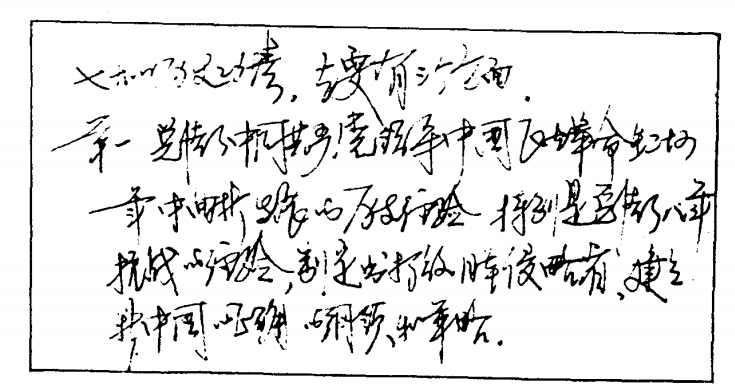 七大的历史功绩，主要有三个方面.
第一 总结了中国共产党领导中国民主革命二十
年来曲折发展的历史经验 特别是总结了八年
抗战的经验,制定出打败日本侵略者、建立
新中国的正确的纲领和策略.